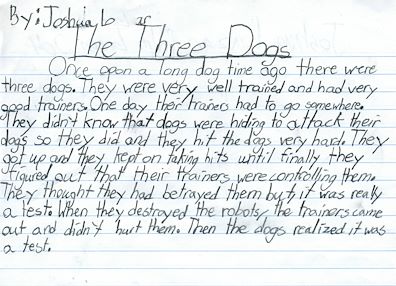 By: Joshua L
The Three Dogs
Once upon a long dog time ago there were
three dogs. They were very well trained and had very
good trainers. One day their trainers had to go somewhere.
They didn't know that dogs were hiding to attack their
dogs so they did and they hit the dogs very hard. They
got up and they kept on taking hits until finally they
figured out that their trainers were controlling them.
They thought they had betrayed them but, it was really
a test. When they destroyed the robots, the trainers came
out and didn't hurt them. Then the dogs realized it was
a test.